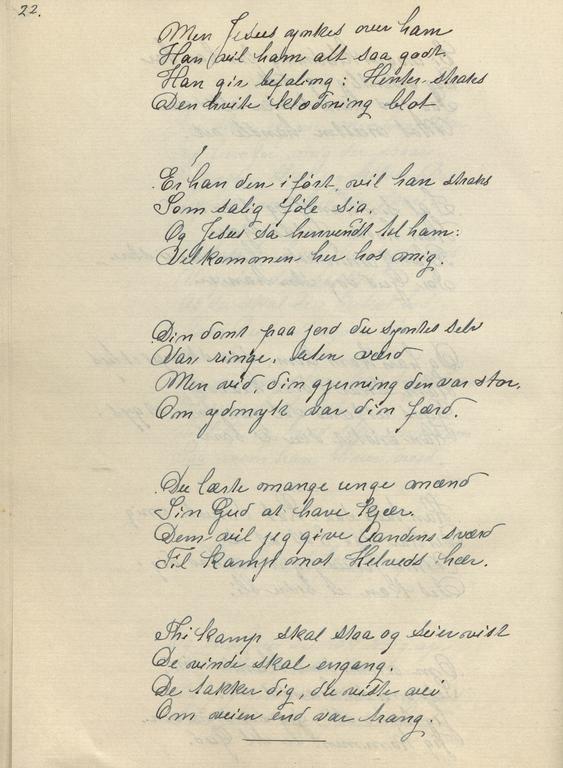 22.
Men Jesus ynkes over ham
Han vil ham alt saa godt
Han gir befaling: Henter straks
Den hvite klædning blot

Er han den iført, vil han straks
Som salig føle sig.
Og Jesus sa henvendt til ham:
Velkommen her hos mig.

Din dont paa jord du syntes selv
Var ringe, uten værd
Men vid, din gjerning den var stor,
Om ydmyk var din færd.

Du lærte mange unge mænd
Sin Gud at have kjær.
Dem vil jeg give Aandens sværd
Til kamp mot Helveds hær.

Thi kamp skal staa og seier vist
De vinde skal engang.
De takker dig, du viste vei
Om veien end var trang.